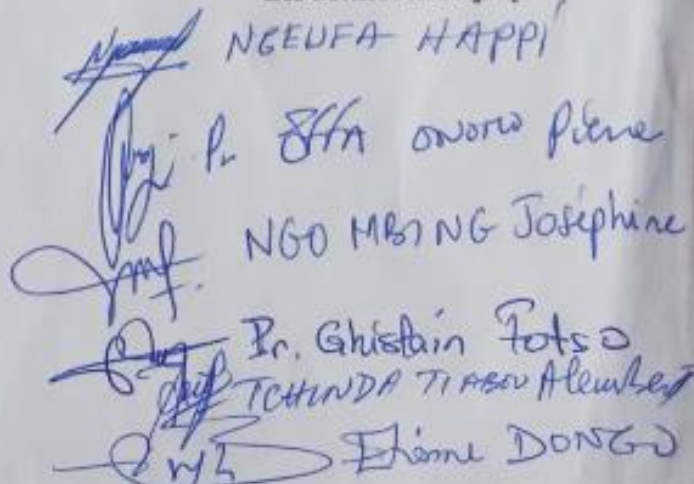 NGEUFA HAPPI
Pr EFFA ONOMO Pierre
NGO MBING Joséphine
Pr. Ghislain Fotso
TCHINDA TIABOU Alembert
Etienne DONGO